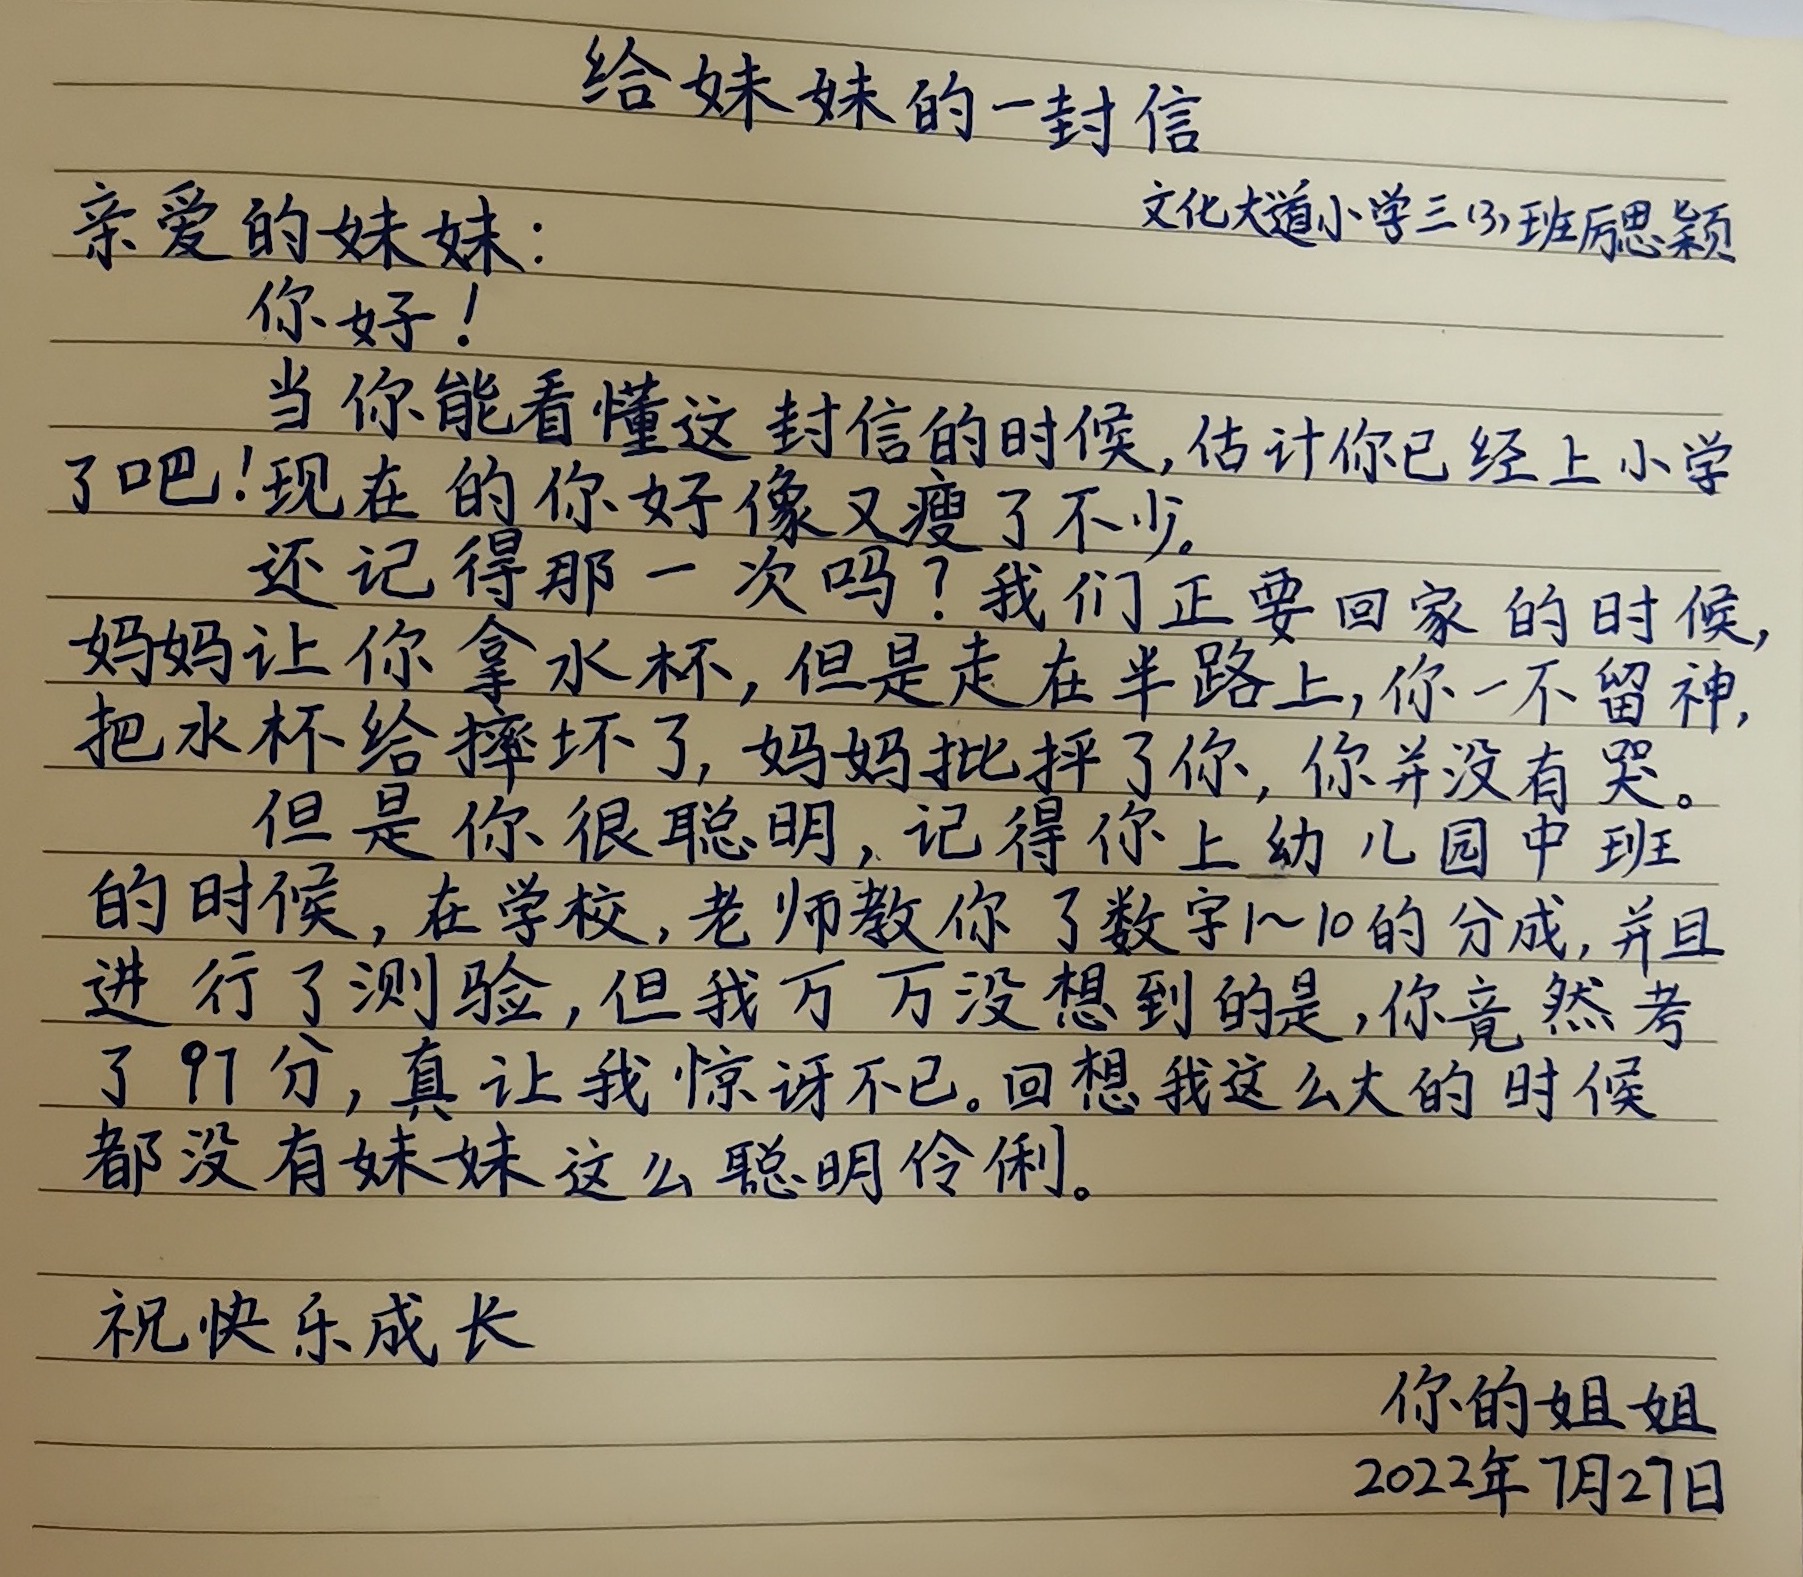 给妹妹的一封信
文化大道小学三(3)班厉思颖
亲爱的妹妹:
你好!
当你能看懂这封信的时候,估计你已经上小学
了吧!现在的你好像又瘦了不少。
还记得那一次吗?我们正要回家的时候,
妈妈让你拿水杯,但是走在半路上,你一不留神,
把水杯给摔坏了,妈妈批抨了你,你并没有哭。
但是你很聪明,记得你上幼儿园中班
的时候,在学校,老师教你了数字1~10的分成,并且
进行了测验,但我万万没想到的是,你竟然考
了97分,真让我惊讶不已。回想我这么大的时候
都没有妹妹这么聪明伶俐。
祝快乐成长
你的姐姐
2022年7月27日